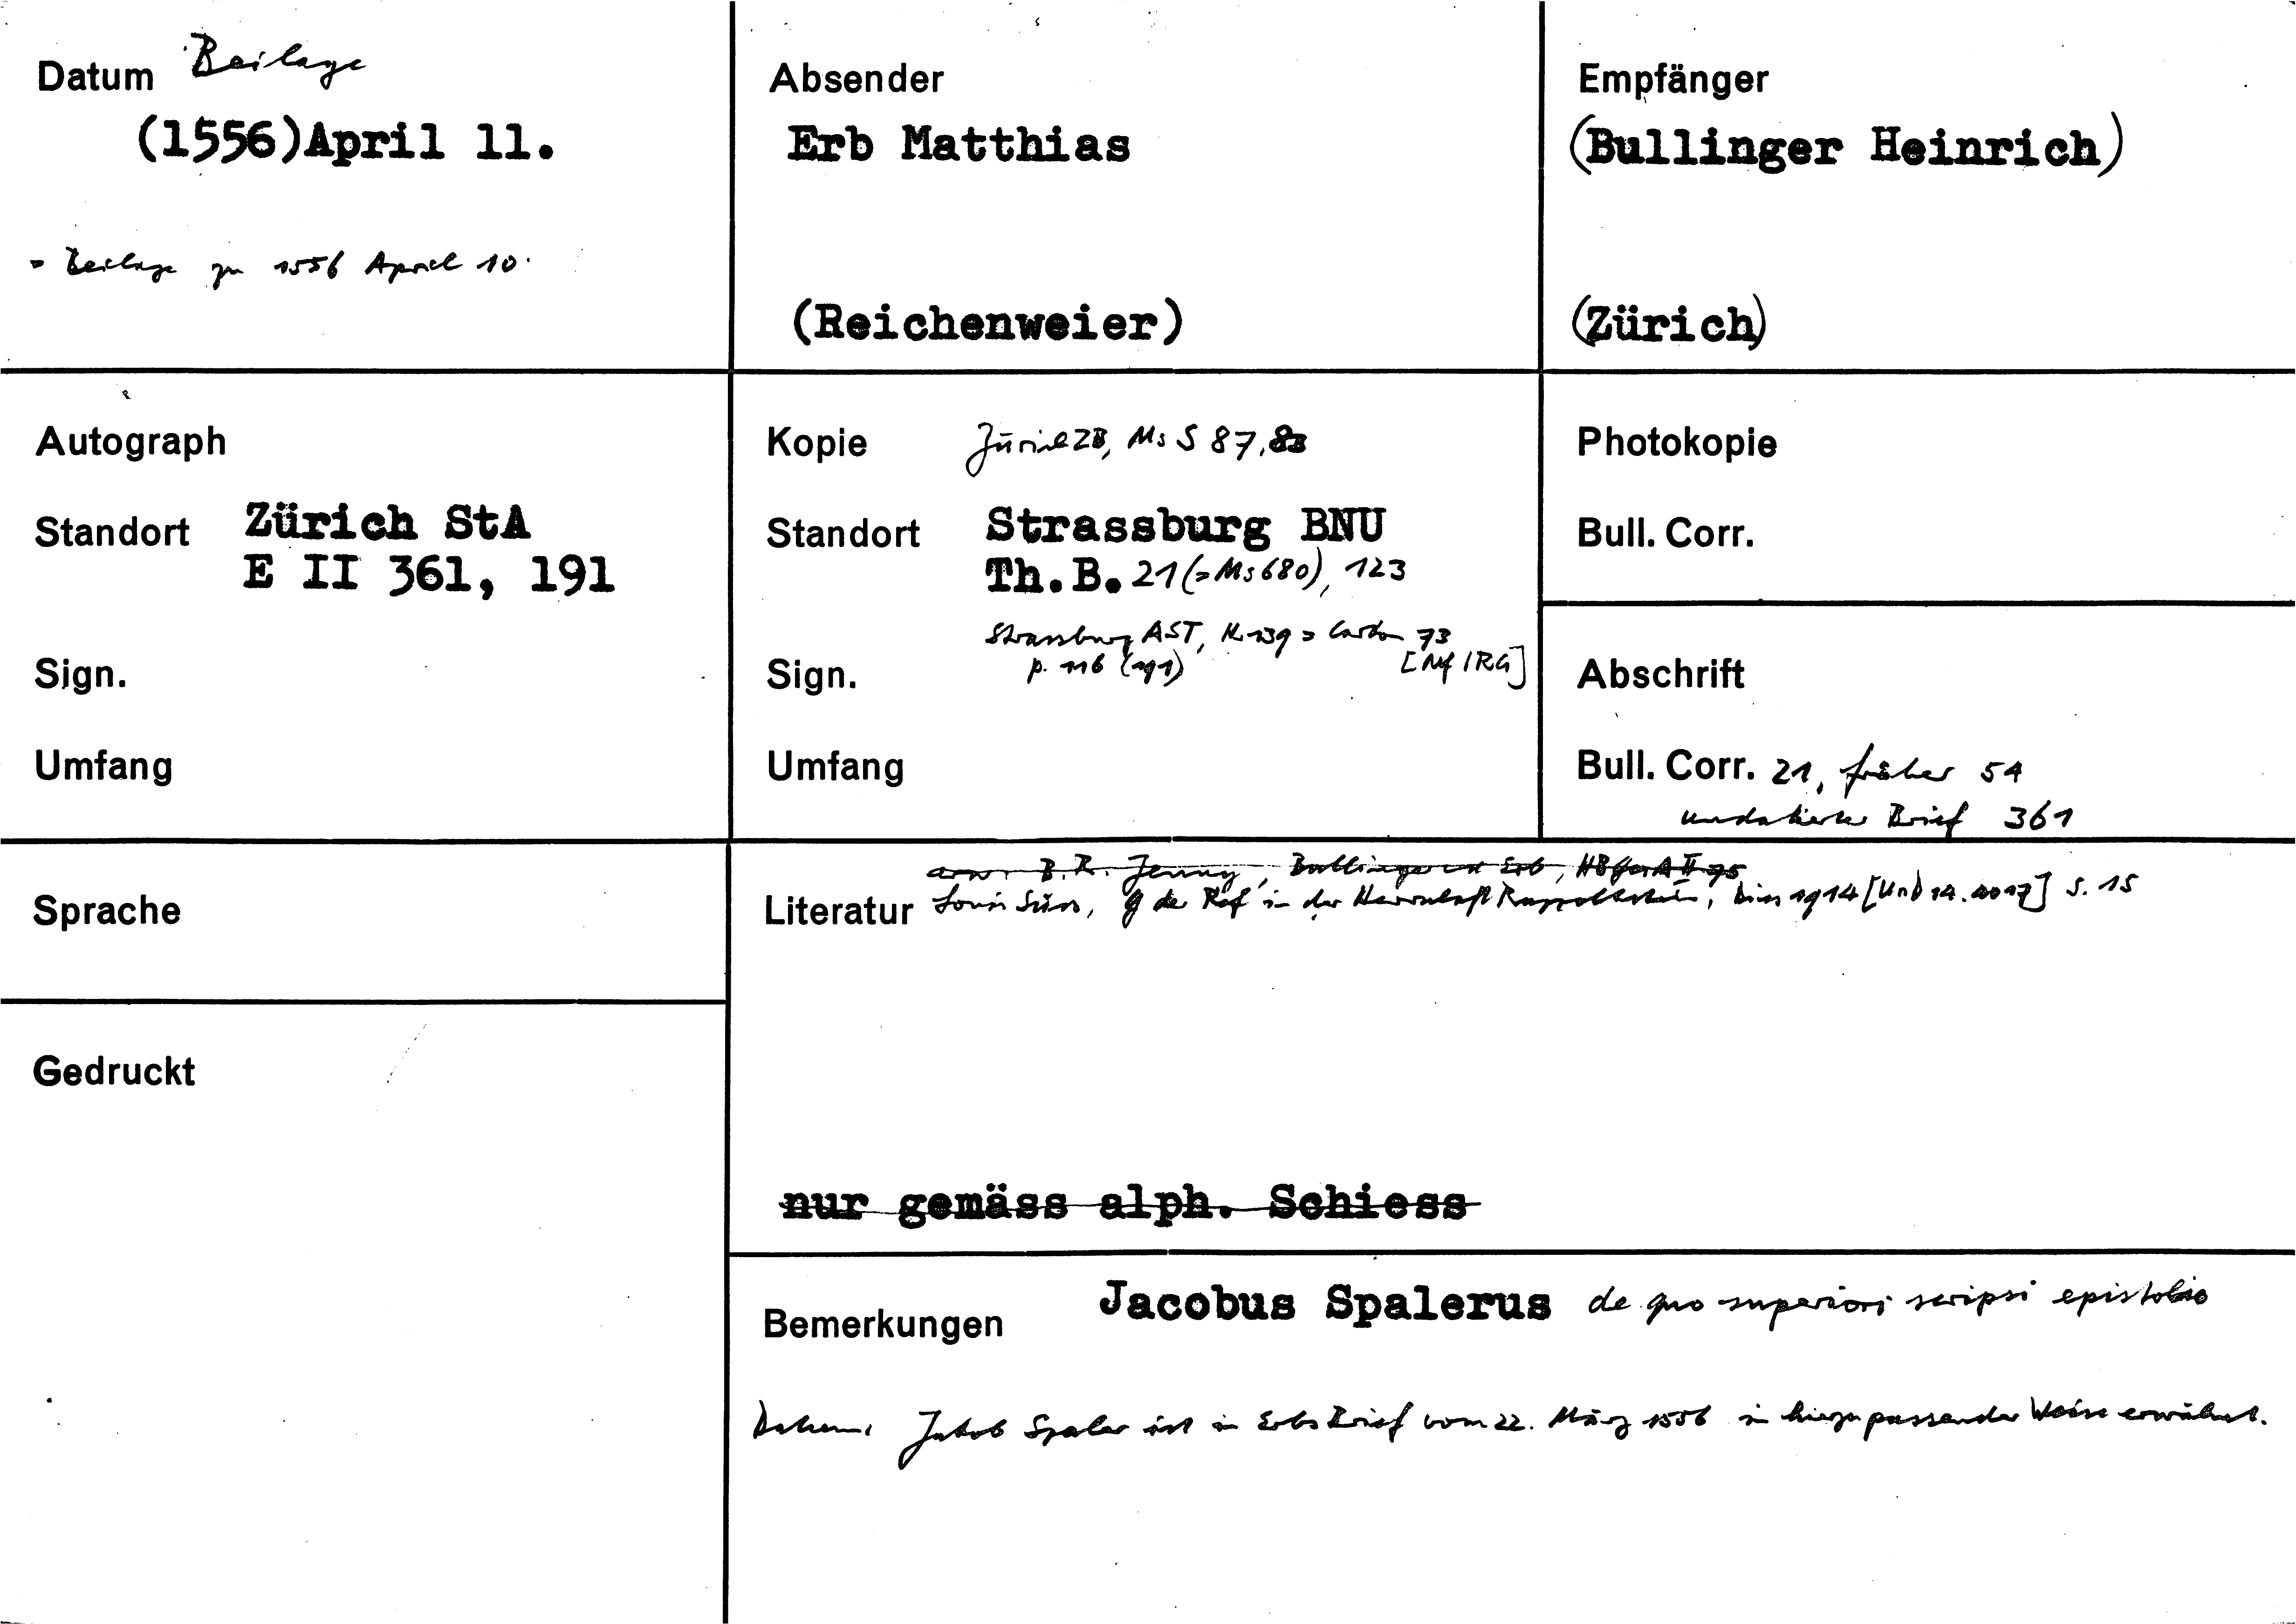 Datum Beilage
(1556)April 11.
= Beilage zu 1556 April 10.
Absender
Erb Matthias
(Reichenweier)
Empfänger
(Bullinger Heinrich)
(Zürich)
Autograph
Standort Zürich StA
E II 361, 191
Sign.
Umfang
Kopie Zürich ZB, Ms S 87, 83
Standort Strassburg BNU
Th.B. 21 (=Ms 680), 123
Strassburg AST, Nr. 139 = Carton 73
p. 116 (191) [Mf IRG]
Sign.
Umfang
Photokopie
Bull. Corr.
Abschrift
Bull. Corr. 21, früher 54
undatierter Brief 361
Sprache
Gedruckt
B. R. Jenny, Bullinger Erb, HBGesA II 75
Literatur Louis Süss, G der Ref in der Herrschaft Rappoltstein, Diss 1914 [UnD 14. 4017] S. 15
nur gemäss alph. Schiess
Bemerkungen Jacobus Spalerus de quo superiori scripsi epistolio
Datum: Jakob Spaler ist in Erbs Brief vom 22. März 1556 in hiezu passender Weise erwähnt.